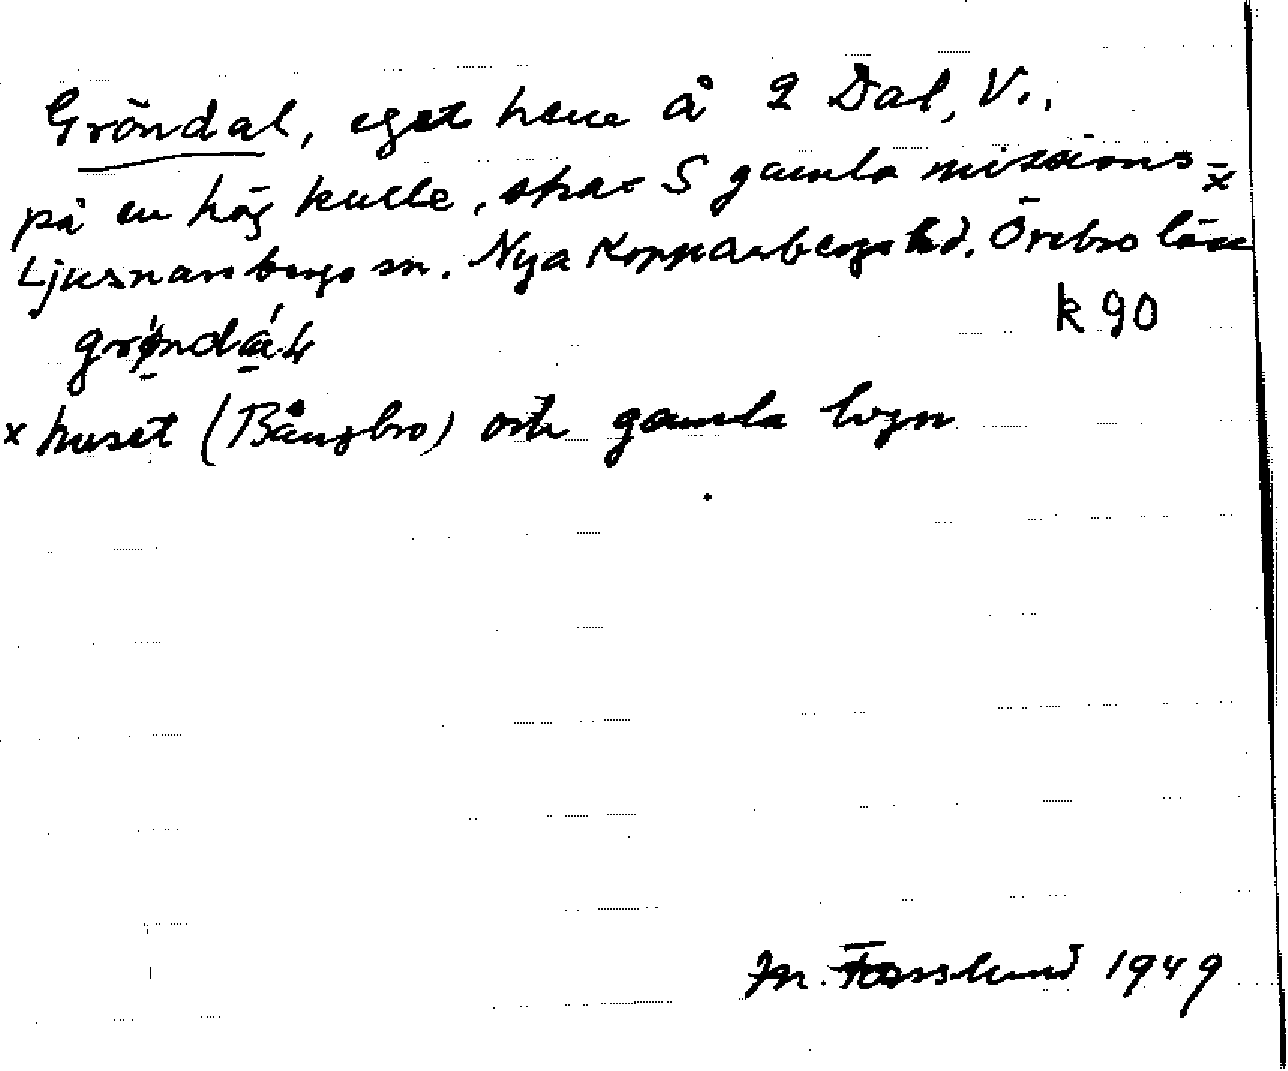 Gröndal, eget hem å 2 Dal, V.,
på en hög kulle, strax S gamla missions- x
Ljusnarsbergs sn. Nya Kopparbergs hd. Örebro län
k 90
x huset (Bångbro) och gamla byn
M. 1949